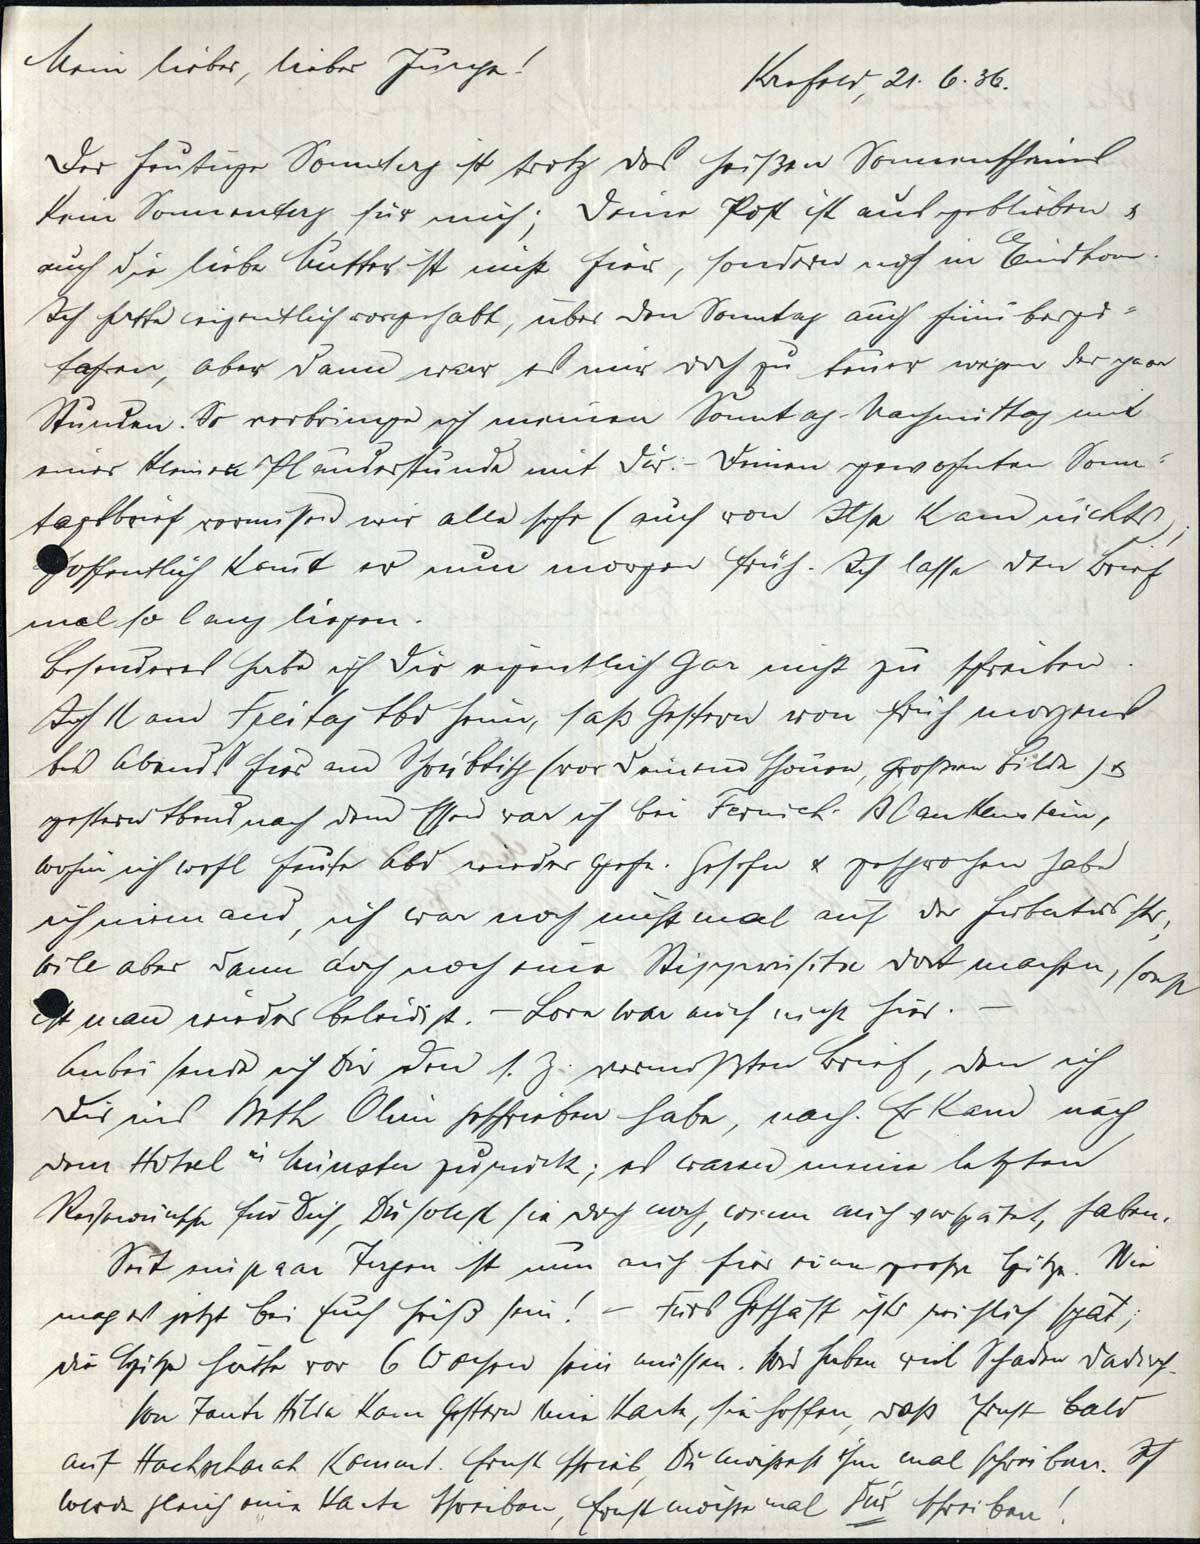 Mein lieber, lieber Junge!
Krefeld, 21. 6. 36.
Der heutige Sonntag ist trotz des heißen Sonnenscheins
kein Sonnentag für mich; Deine Post ist ausgeblieben &
auch die liebe Mutter ist nicht hier, sondern noch in Eindhov.
Ich hatte eigentlich vorgehabt, über den Sonntag auch hinüberzu=
fahren, aber dann war es mir doch zu teuer wegen der paar
Stunden. So verbringe ich meinen Sonntag-Nachmittag mit
einer kleinen Plauderstunde mit Dir. - Deinen gewohnten Sonn=
tagsbrief vermissen wir alle sehr (auch von Ilse kam nichts),
hoffentlich kommt er nun morgen früh. Ich lasse den Brief
mal so lang liegen.
Besonderes habe ich Dir eigentlich gar nicht zu schreiben.
Ich kam Freitag Abd heim, saß gestern von früh morgens
bis Abends hier am Schreibtisch (vor Deinem schönen, großen Bilde) &
gestern Abend nach dem Essen war ich bei Blankenstein,
wohin ich wohl heute Abd wieder gehe. Gesehn & gesprochen habe
ich niemand, ich war noch nicht mal auf der str;
will aber dann doch noch eine Stippvisite dort machen, sonst
ist man wieder beleidigt. - Lore war auch nicht hier. -
Anbei sende ich Dir den s. Z. vermißten Brief, den ich
Dir ins geschrieben habe, nach. Er kam nach
dem Hotel in Münster zurück; es waren meine letzten
Reisewünsche für Dich, Du sollst sie doch noch, wenn auch verspätet, haben.
Seit ein paar Tagen ist nun auch hier eine große Hitze. Wie
mag es jetzt bei Euch heiß sein! - Fürs Geschäft ists reichlich spät;
die Hitze hätte vor 6 Wochen sein müssen. Wir haben viel Schaden dadurch.
Von Tante Hilde kam gestern eine Karte, sie hoffen, daß Ernst bald
auf Hachscharah kommt. Ernst schrieb, Du möchtest ihm mal schreiben. Ich
werde gleich eine Karte schreiben, Ernst möchte mal Dir schreiben!